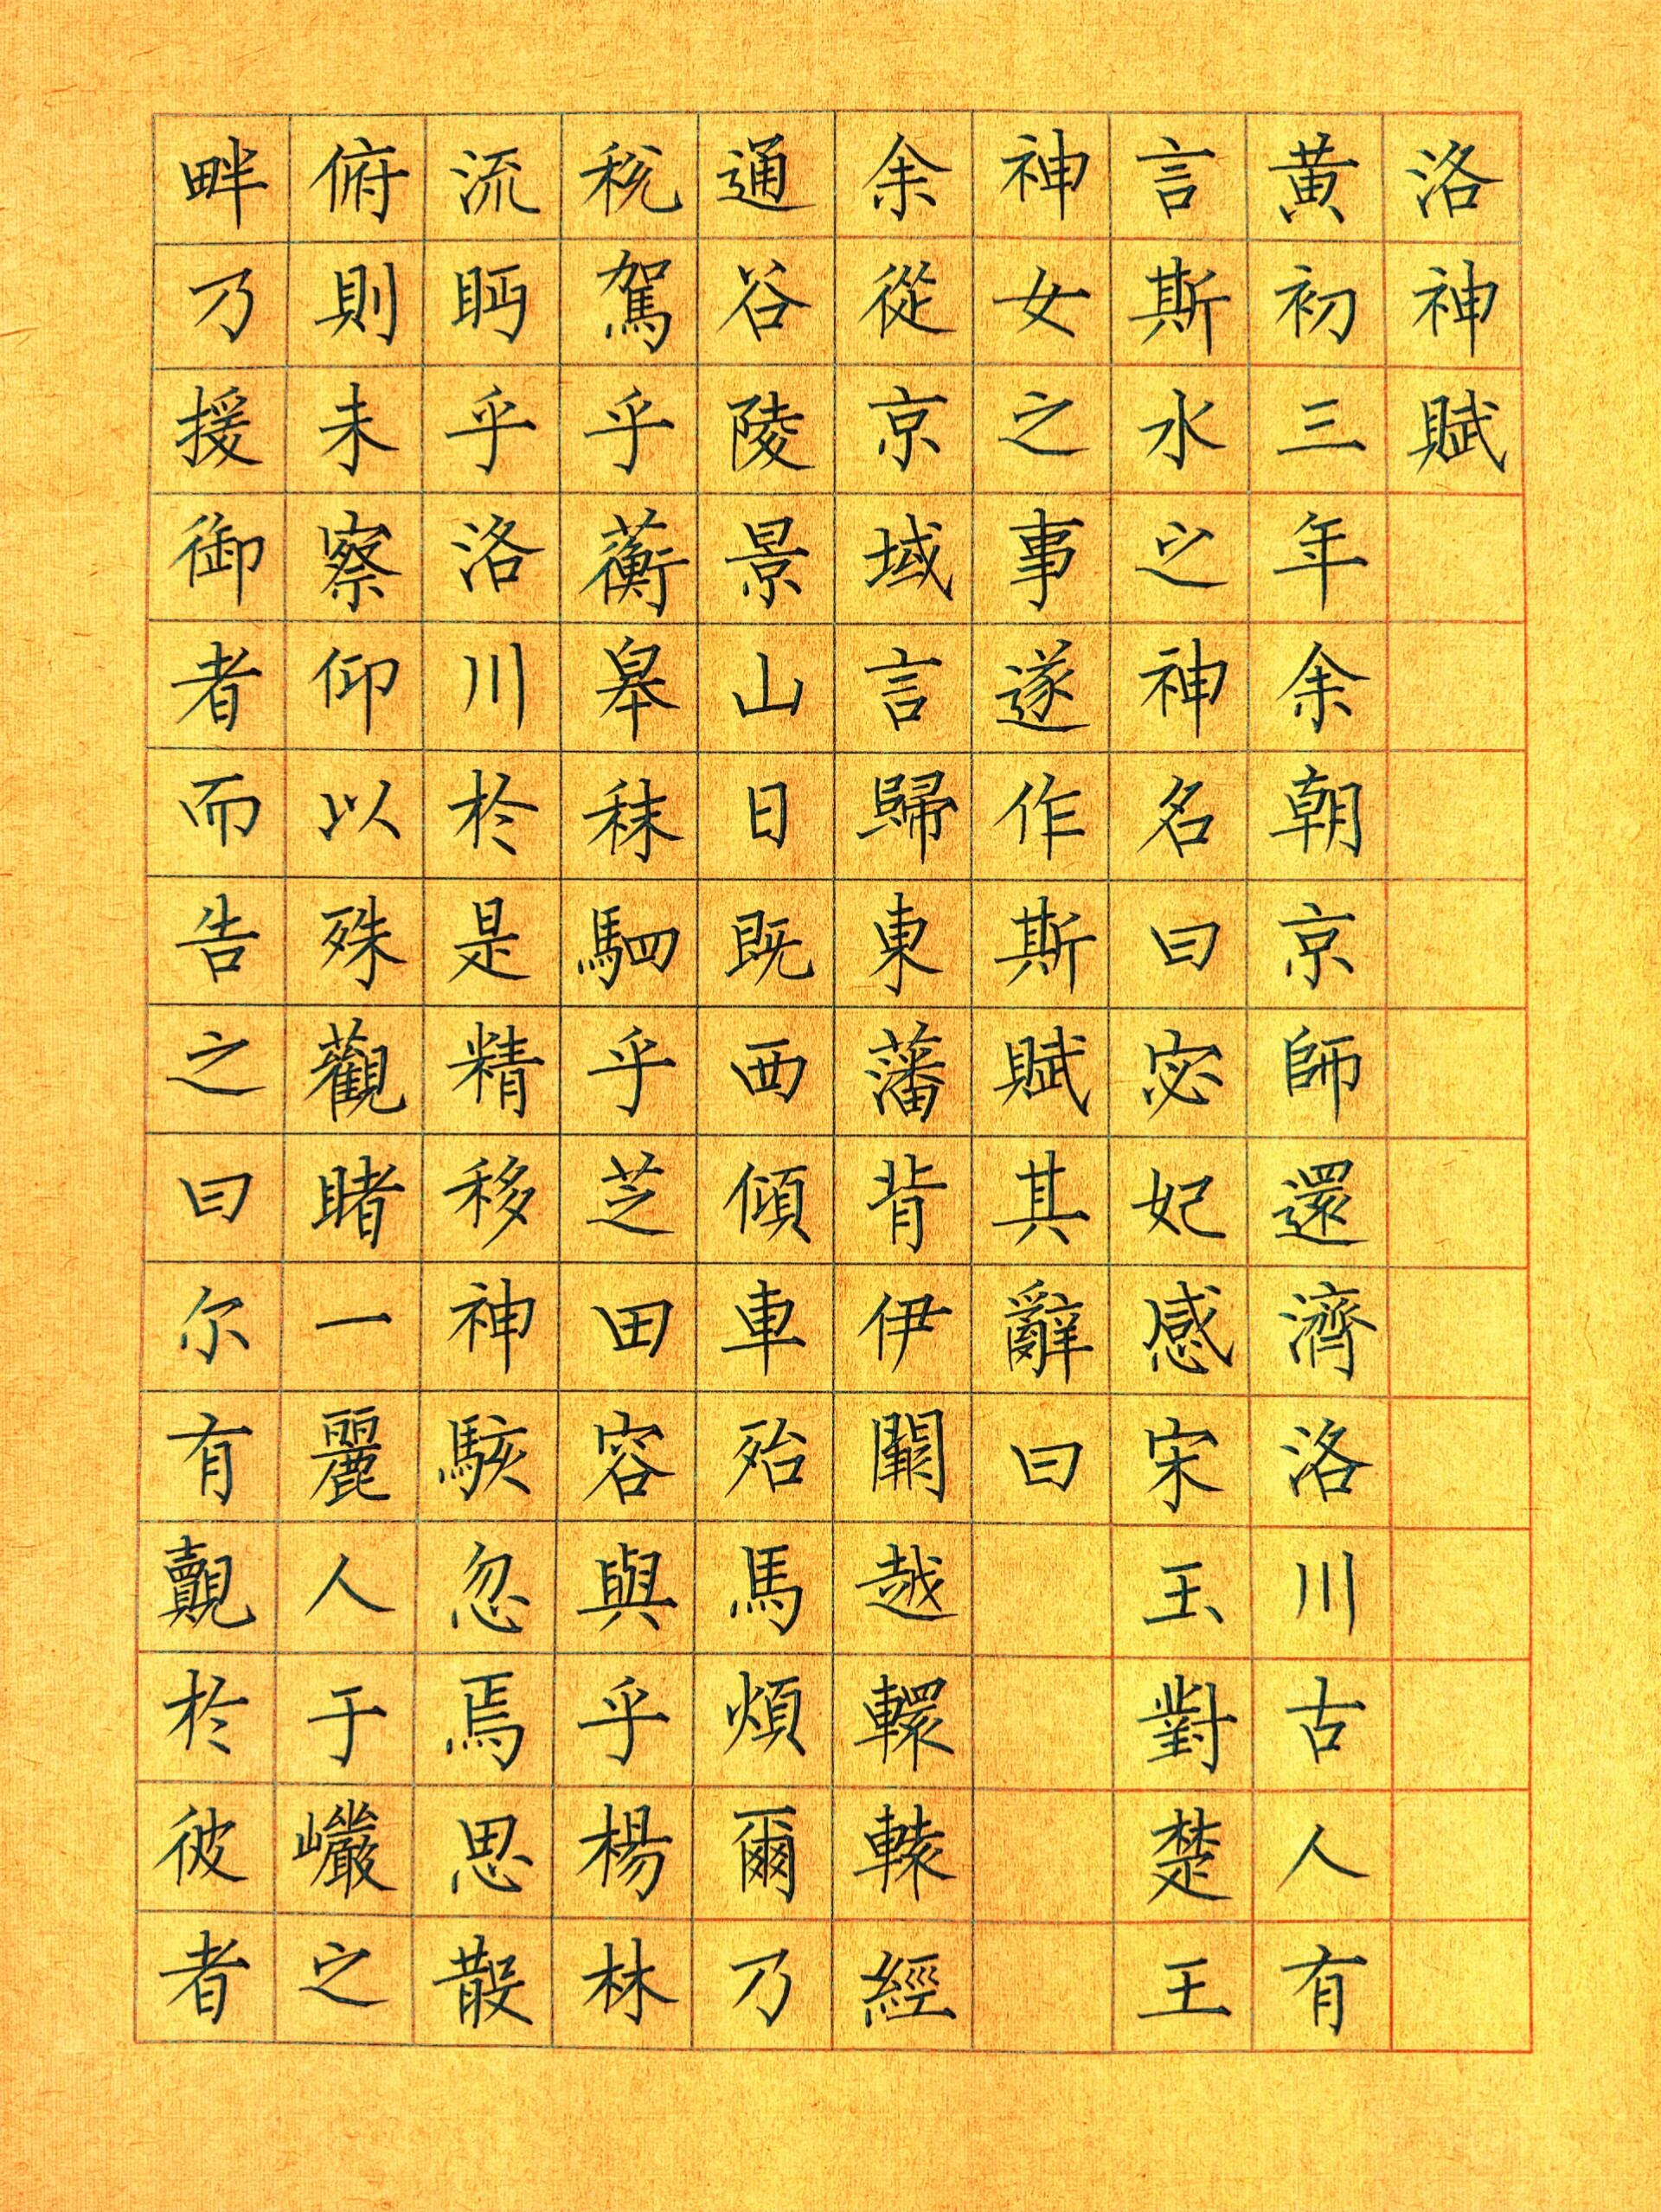 洛神賦
黄初三年余朝京師還濟洛川古人有
言斯水之神名曰宓妃感宋玉對楚王
神女之事遂作斯賦其辭曰
余從京域言歸東藩背伊闕越轘轅經
通谷陵景山日既西傾車殆馬煩爾乃
稅駕乎蘅皋秣駟乎芝田容與乎楊林
流眄乎洛川於是精移神駭忽焉思散
俯則未察仰以殊觀睹一麗人于巖之
畔乃援御者而告之曰尔有覿於彼者